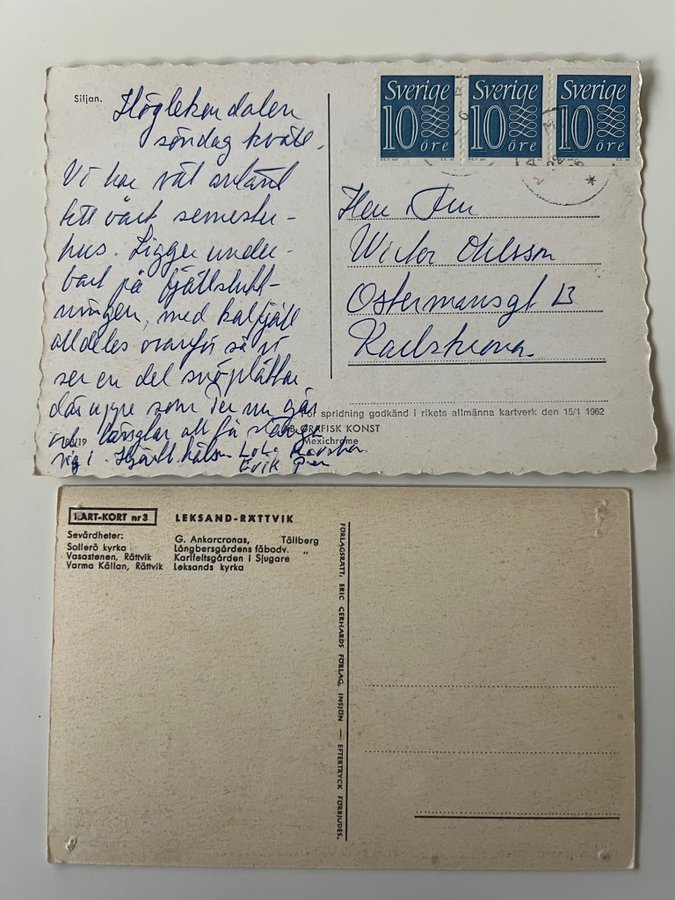 Siljan.
Höglekardalen
söndag kväll.
Vi har
vårt semester-
hus. Ligger under-
bart på fjällslutt-
ningen, med kalfjäll
alldeles ovanför så vi
ser en del snöplättar
där uppe som Per nu går
och längtar att få slänga
sig i. Hjärtl. häls.
Erik Per
Sverige
10 öre
Sverige
10 öre
Sverige
10 öre
Herr Fru
Victor Ohlsson
Östermansgt 13
Karlskrona.
För spridning godkänd i rikets allmänna kartverk den 15/1 1962
AB GRAFISK KONST
Mexichrome
KART-KORT nr 3
LEKSAND-RÄTTVIK
Sevärdheter:
Sollerö kyrka
Vasastenen, Rättvik
Varma Källan, Rättvik
G. Ankarcronas, Tällberg
Långbersgårdens fäbodv. "
Karlfeltsgården i Sjugare
Leksands kyrka
FÖRLAGSRÄTT, ERIC GERHARDS FÖRLAG, INSJÖN — EFTERTRYCK FÖRBJUDES.